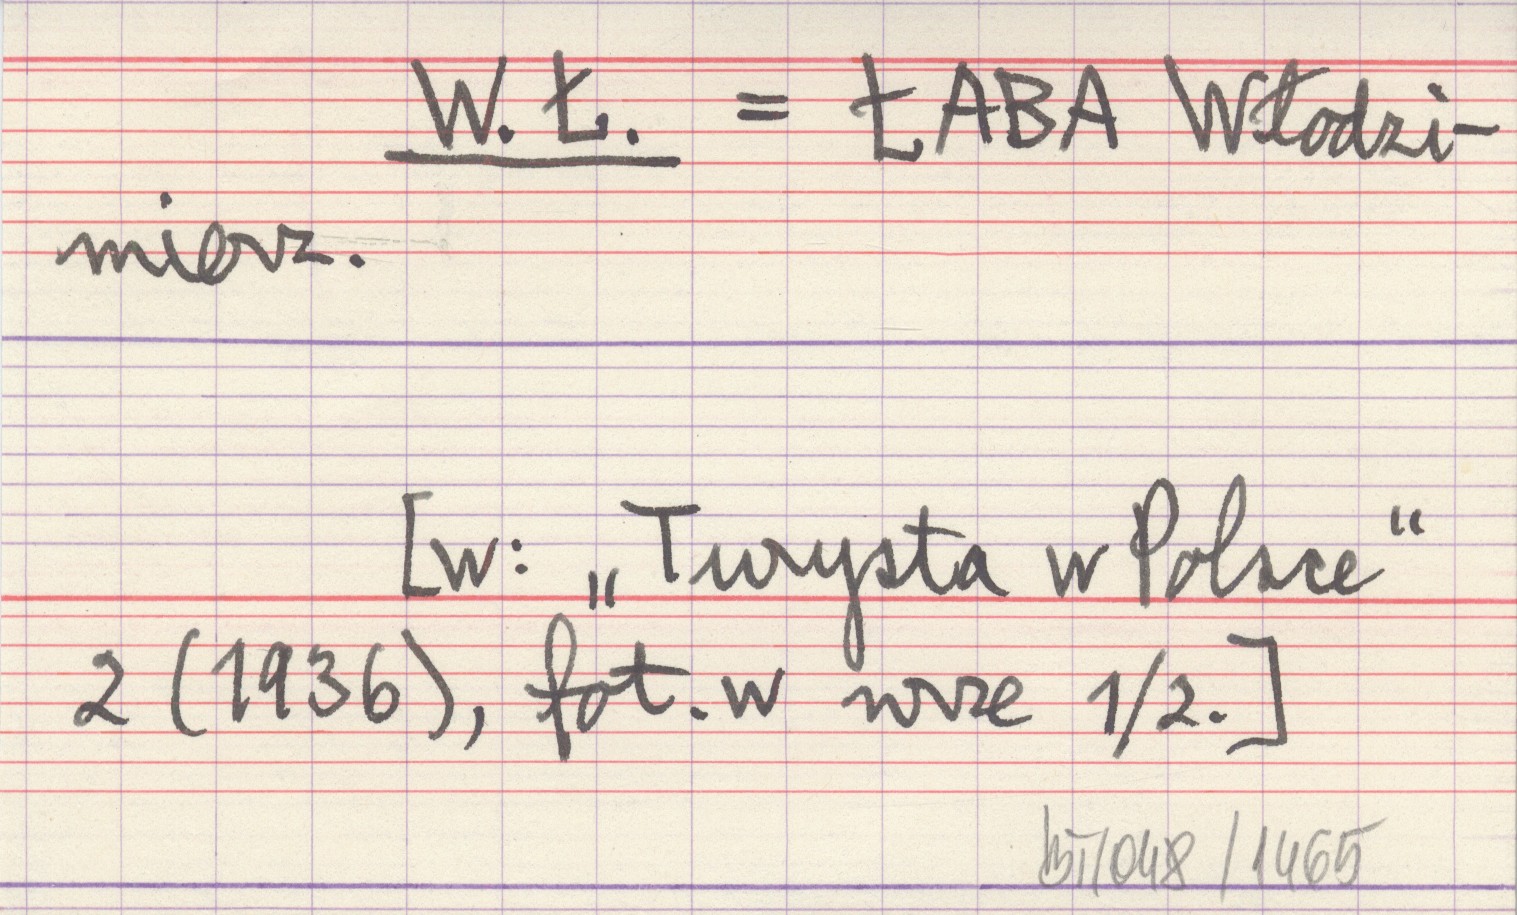 W. Ł. = ŁABA Włodzi-
mierz.
[w: „Turysta w Polsce“
2 (1936), fot. w nrze 1/2.]
BT/048/1465